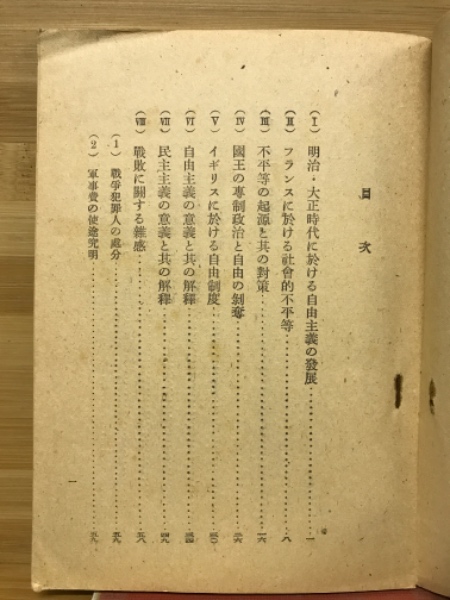 目次
(I) 明治・大正時代に於ける自由主義の發展……一
(II) フランスに於ける社會的不平等……八
(III) 不平等の起源と其の對策……一六
(IV) 國王の專制政治と自由の剝奪……二六
(V) イギリスに於ける自由制度……三〇
(VI) 自由主義の意義と其の解釋……三四
(VII) 民主主義の意義と其の解釋……四九
(VIII) 戰敗に關する雜感……五八
(1) 戰爭犯罪人の處分……五九
(2) 軍事費の使途究明……五九
一